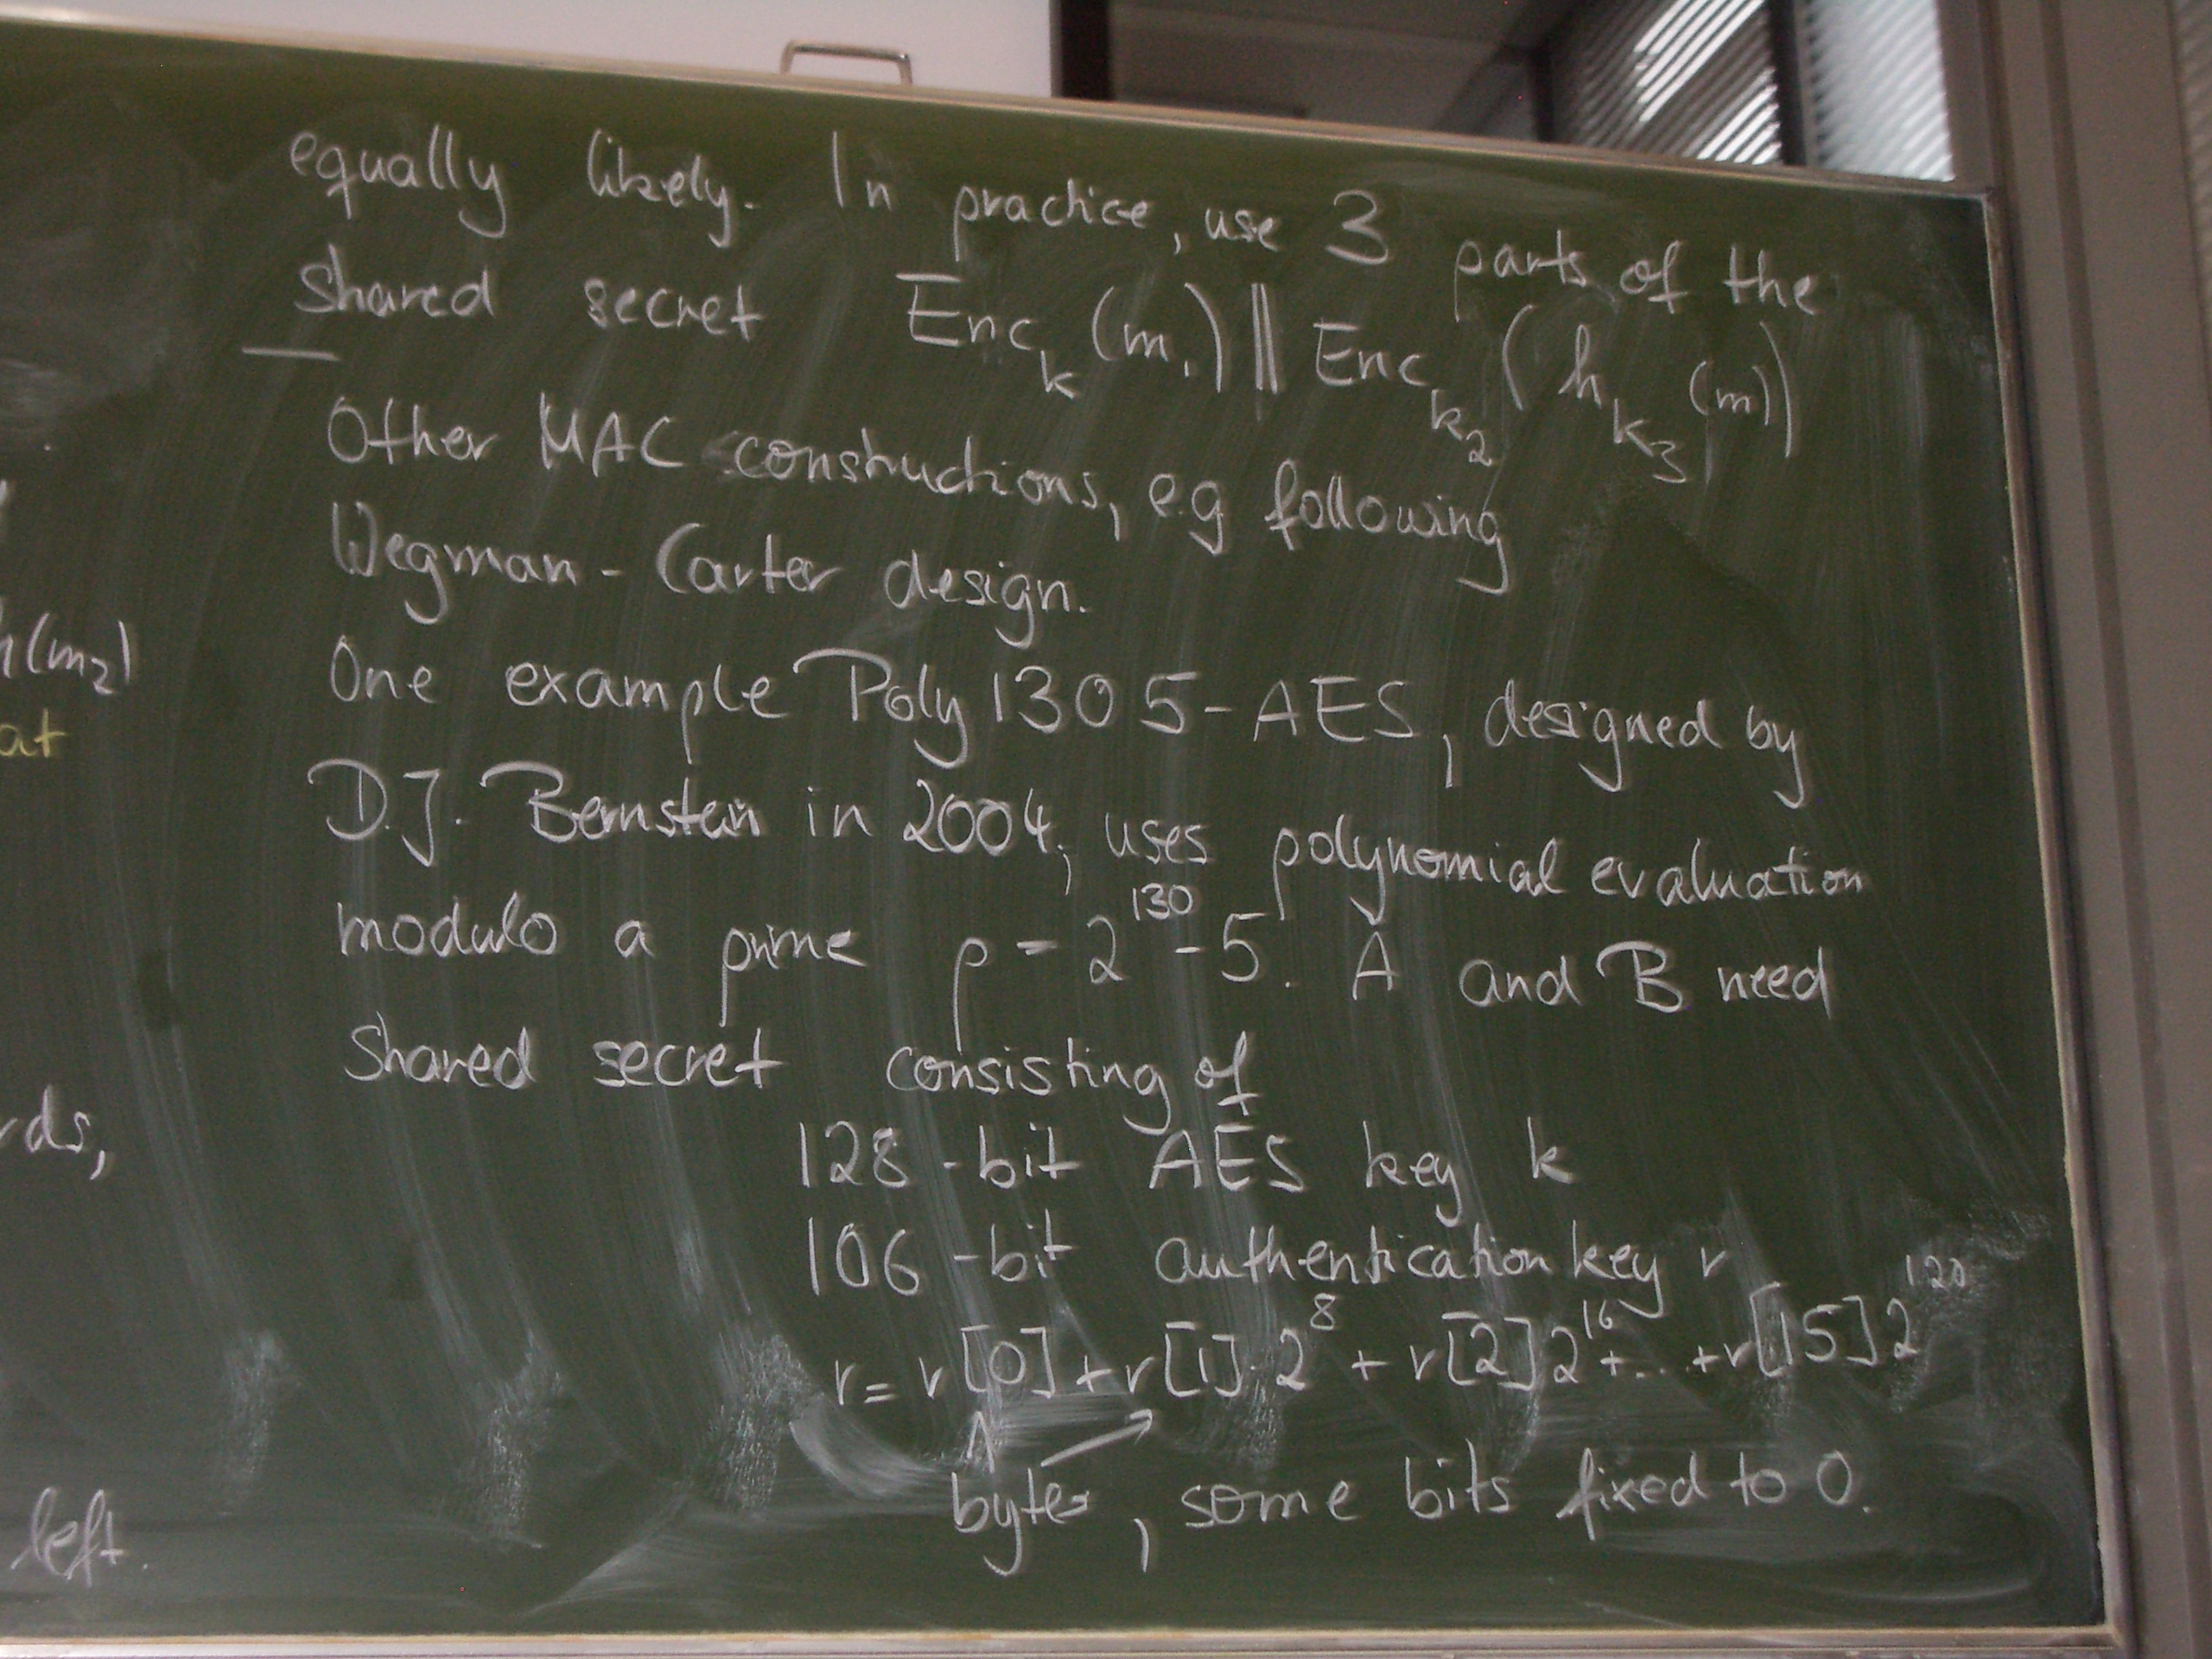 equally likely. In practice, use 3 parts of the
shared secret Enc_k (m.) || Enc_k2 (h_k3 (m))
Other MAC constructions, e.g following
Wegman - Carter design.
h(m2)
One example Poly1305-AES, designed by
at
D.J. Bernstein in 2004, uses polynomial evaluation
modulo a prime p = 2^130 - 5. A and B need
shared secret consisting of
rds,
128-bit AES key k
106-bit authentication key r
r = r[0] + r[1]·2^8 + r[2]2^16 + ... + r[15]2^120
bytes, some bits fixed to 0.
left.